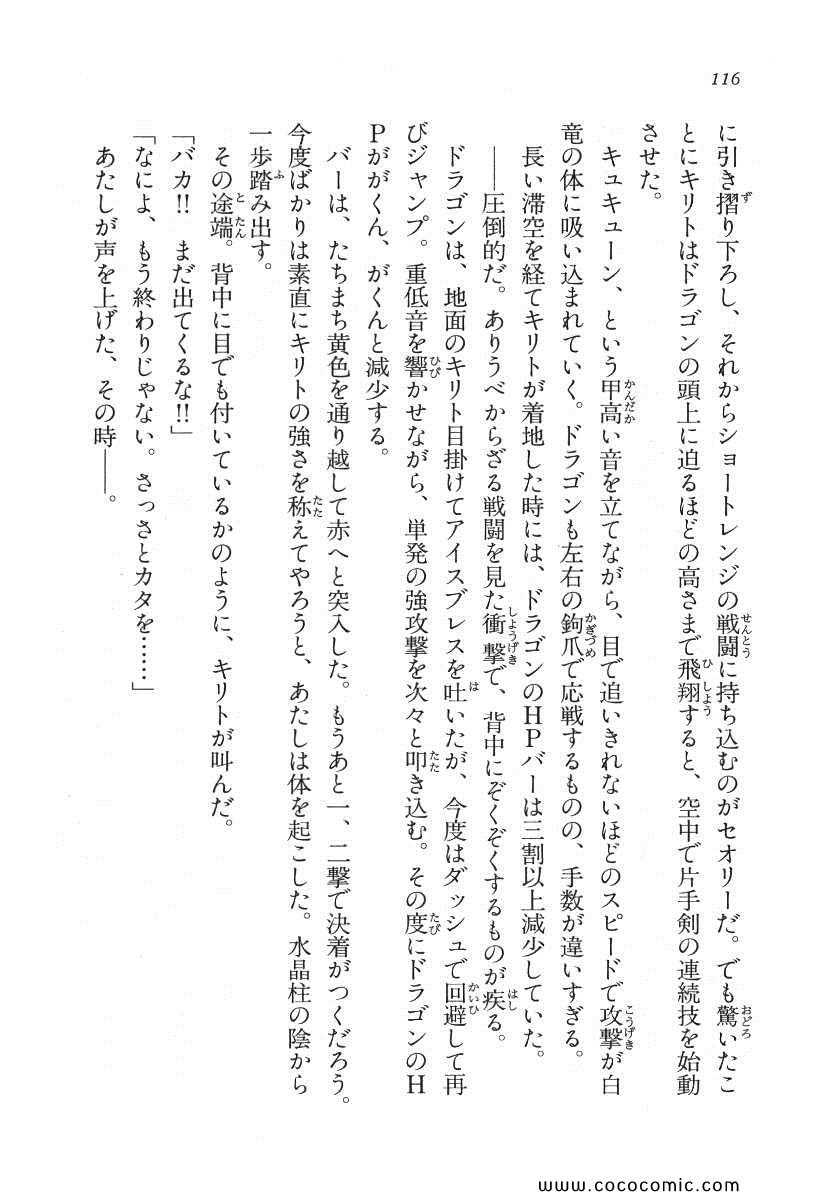 116
に引き摺り下ろし、それからショートレンジの戦闘に持ち込むのがセオリーだ。でも驚いたこ
とにキリトはドラゴンの頭上に迫るほどの高さまで飛翔すると、空中で片手剣の連続技を始動
させた。
キュキューン、という甲高い音を立てながら、目で追いきれないほどのスピードで攻撃が白
竜の体に吸い込まれていく。ドラゴンも左右の鉤爪で応戦するものの、手数が違いすぎる。
長い滞空を経てキリトが着地した時には、ドラゴンのHPバーは三割以上減少していた。
——圧倒的だ。ありうべからざる戦闘を見た衝撃で、背中にぞくぞくするものが疾る。
ドラゴンは、地面のキリト目掛けてアイスブレスを吐いたが、今度はダッシュで回避して再
びジャンプ。重低音を響かせながら、単発の強攻撃を次々と叩き込む。その度にドラゴンのH
Pががくん、がくんと減少する。
バーは、たちまち黄色を通り越して赤へと突入した。もうあと一、二撃で決着がつくだろう。
今度ばかりは素直にキリトの強さを称えてやろうと、あたしは体を起こした。水晶柱の陰から
一歩踏み出す。
その途端。背中に目でも付いているかのように、キリトが叫んだ。
「バカ!! まだ出てくるな!!」
「なによ、もう終わりじゃない。さっさとカタを……」
あたしが声を上げた、その時——。
www.cococomic.com